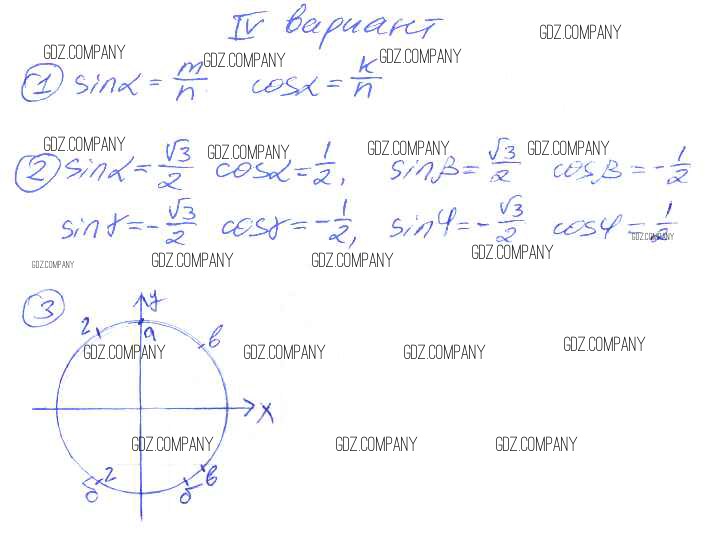 IV вариант
GDZ.COMPANY GDZ.COMPANY GDZ.COMPANY GDZ.COMPANY
① sinα = m/n cosα = k/n
GDZ.COMPANY GDZ.COMPANY GDZ.COMPANY GDZ.COMPANY
② sinα = √3/2 cosα = 1/2, sinβ = √3/2 cosβ = -1/2
sinγ = -√3/2 cosγ = -1/2, sinφ = -√3/2 cosφ = 1/2
GDZ.COMPANY
GDZ.COMPANY GDZ.COMPANY GDZ.COMPANY GDZ.COMPANY
③ y
г а в
GDZ.COMPANY GDZ.COMPANY GDZ.COMPANY GDZ.COMPANY
x
GDZ.COMPANY GDZ.COMPANY GDZ.COMPANY
г в
б б